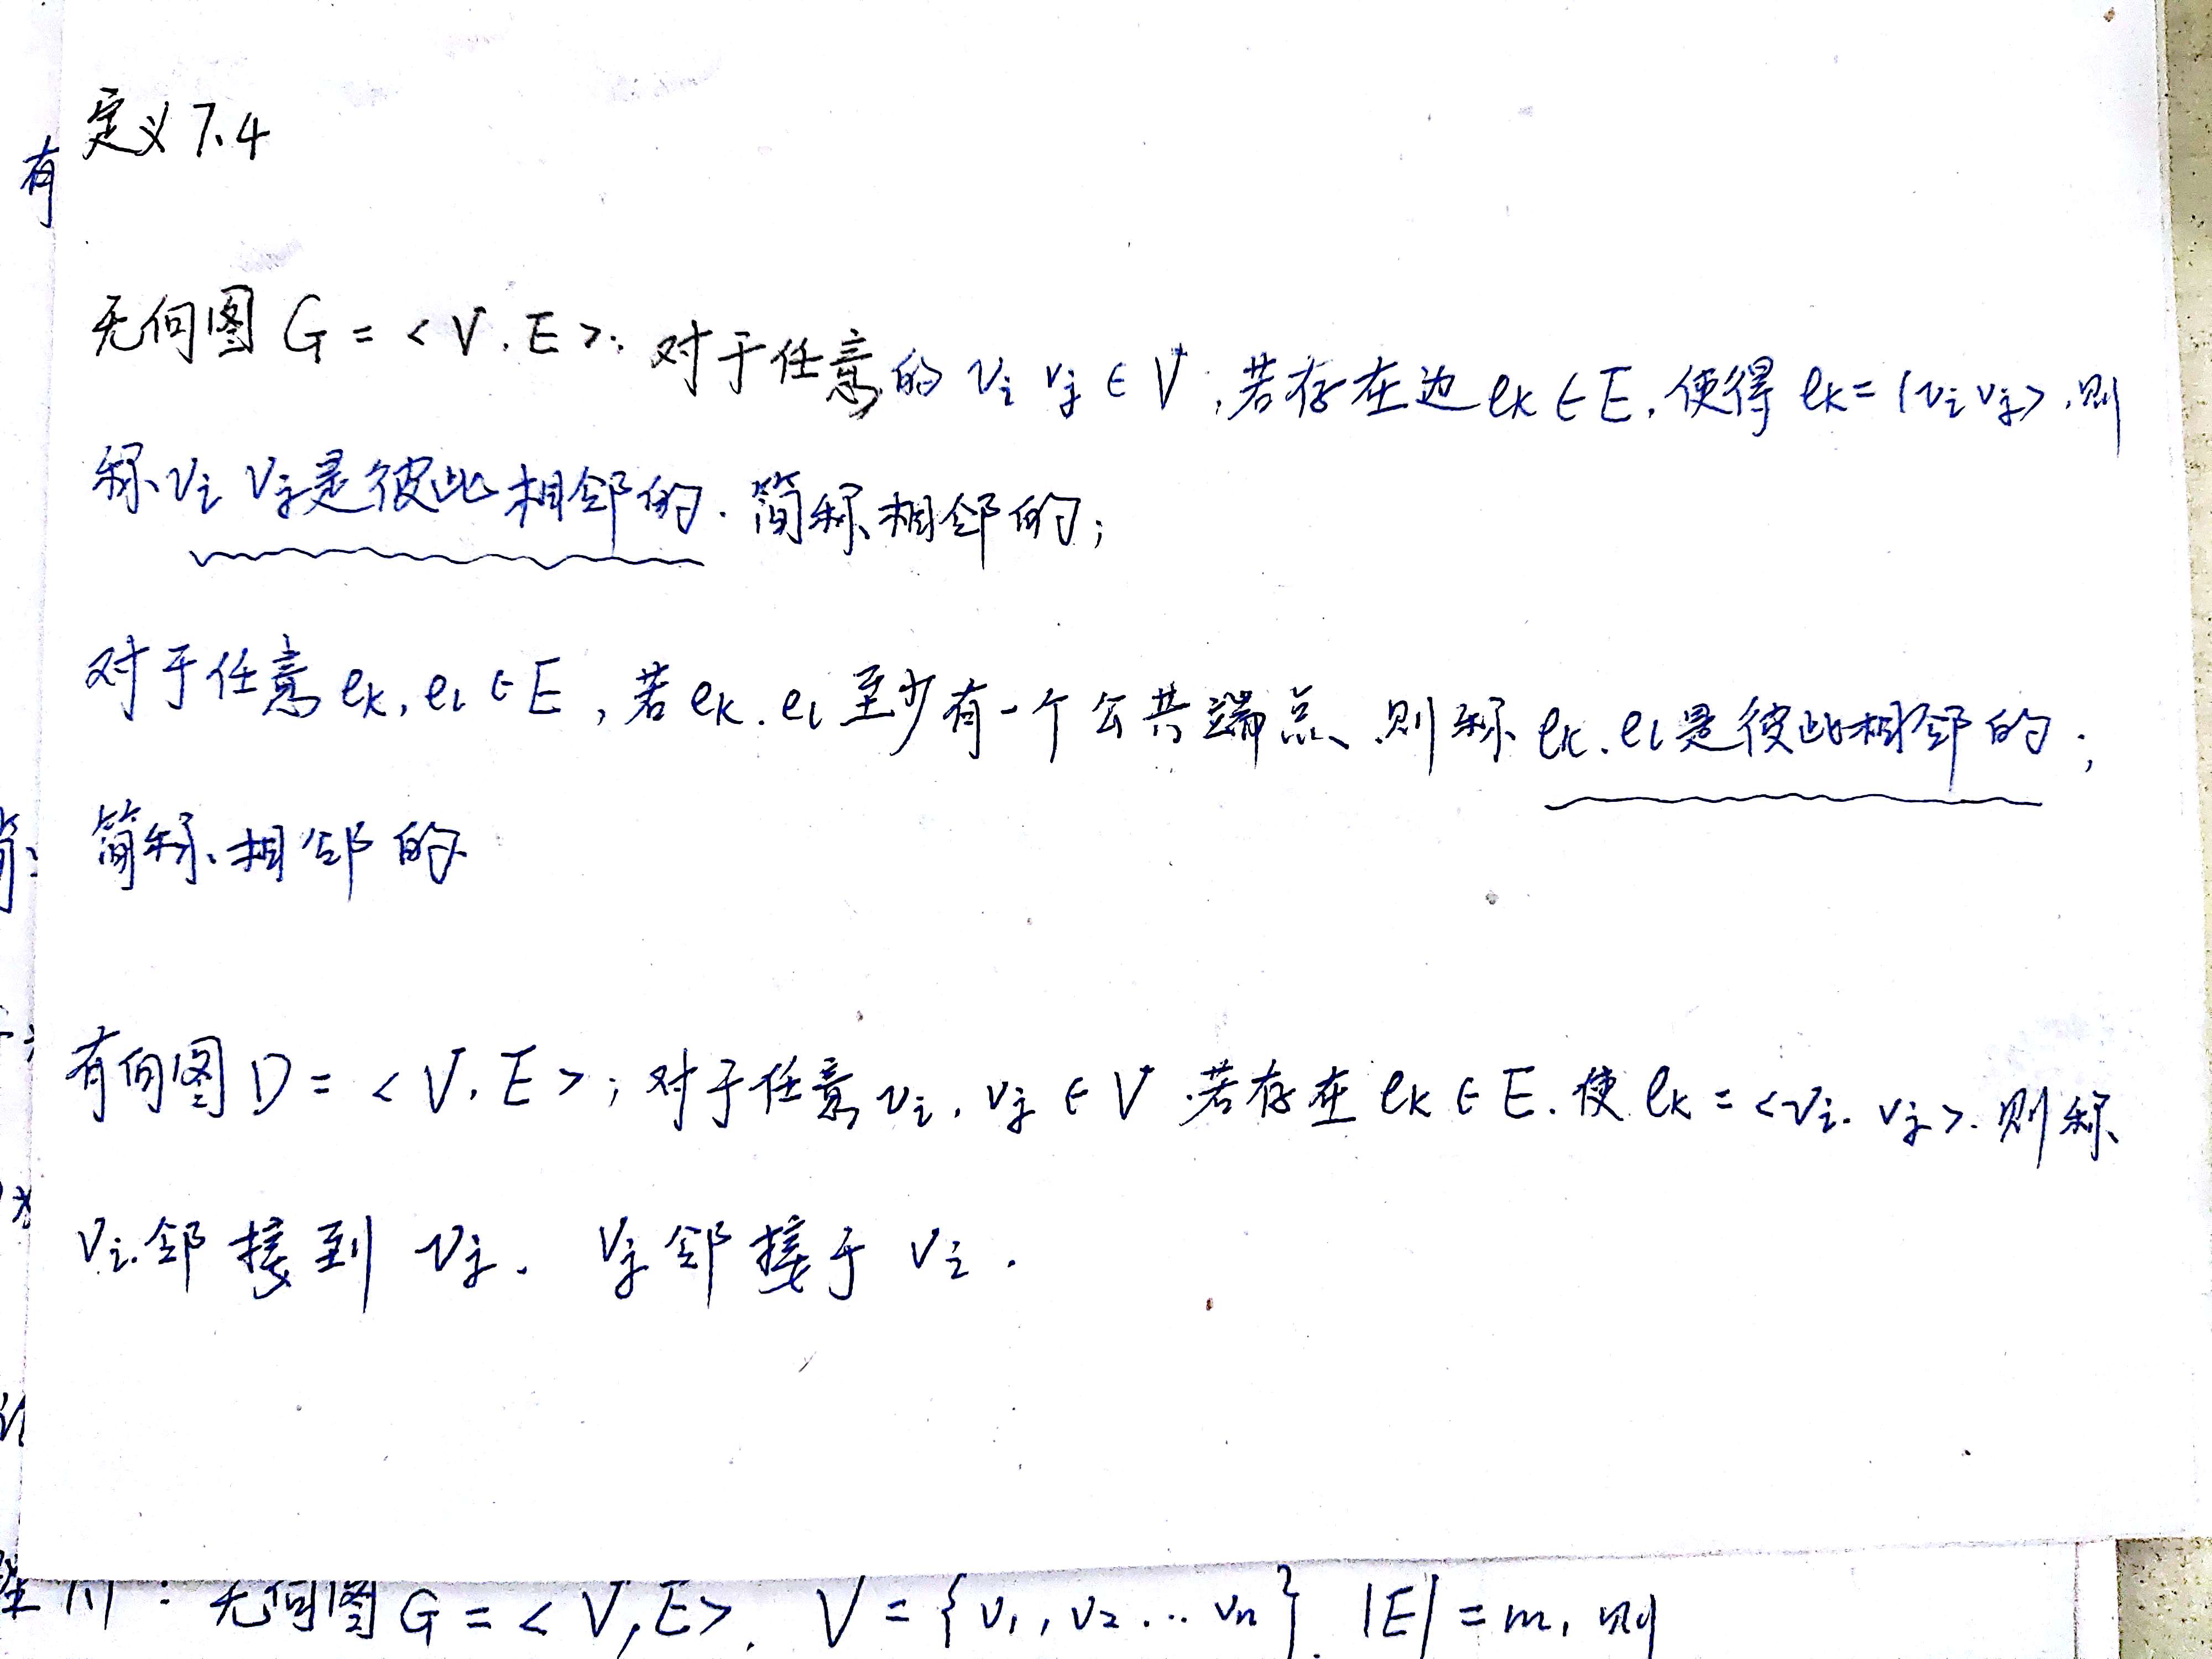 定义7.4
有
无向图 G = <V, E>; 对于任意的 vi vj ∈ V, 若存在边 ek ∈ E, 使得 ek = (vi vj>, 则
称 vi vj是彼此相邻的. 简称相邻的;
对于任意 ek, el ∈ E, 若 ek. el 至少有一个公共端点、则称 ek. el是彼此相邻的;
简称相邻的
有向图 D = <V, E>; 对于任意 vi, vj ∈ V 若存在 ek ∈ E. 使 ek = <vi. vj>. 则称
vi邻接到 vj. vj邻接于 vi.
: 无向图 G = <V, E>. V = {v1, v2 ... vn}. |E| = m, 则